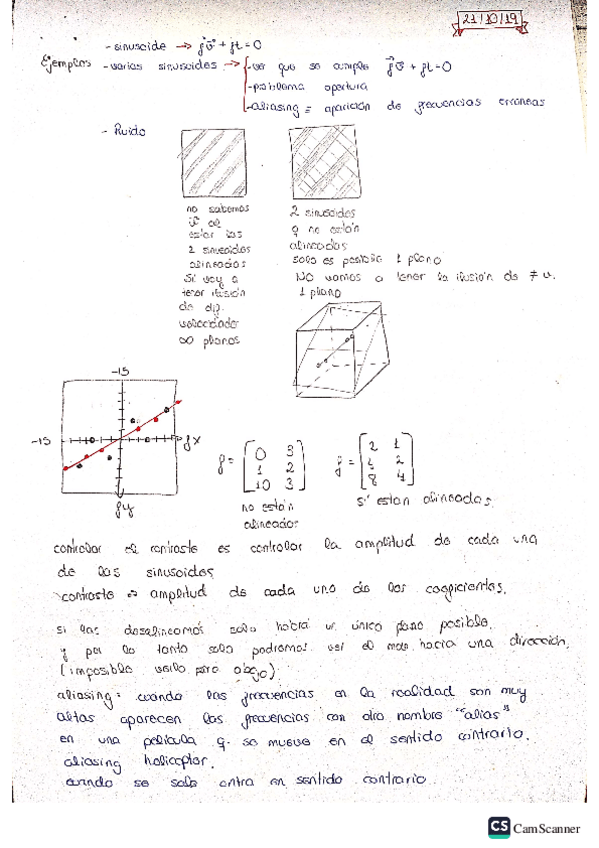 21/10/19
- sinusoide → f v + ft = 0
Ejemplos - varias sinusoides → - ver que se cumple f v + ft = 0
- problema apertura
- aliasing = aparición de frecuencias erroneas
- Ruido
no sabemos
v al
estar las
2 sinusoides
alineadas
Si voy a
tener ilusión
de dif.
velocidades
∞ planos
2 sinusoides
q no están
alineadas
solo es posible 1 plano
NO vamos a tener la ilusión de ≠ v.
1 plano
-15
-15
fx
fy
f = [0 3
1 2
10 3]
no están
alineados
f = [2 1
4 2
8 4]
si están alineadas.
controlar el contraste es controlar la amplitud de cada una
de las sinusoides
contraste = amplitud de cada uno de los coeficientes.
si las desalineamos solo habrá un único plano posible.
y por lo tanto solo podremos ver el mov hacia una dirección.
(imposible verlo para abajo)
aliasing: cuando las frecuencias en la realidad son muy
altas aparecen las frecuencias con otro nombre "alias"
en una película q se mueve en el sentido contrario.
aliasing helicopter.
cuando se sale entra en sentido contrario.
CS CamScanner